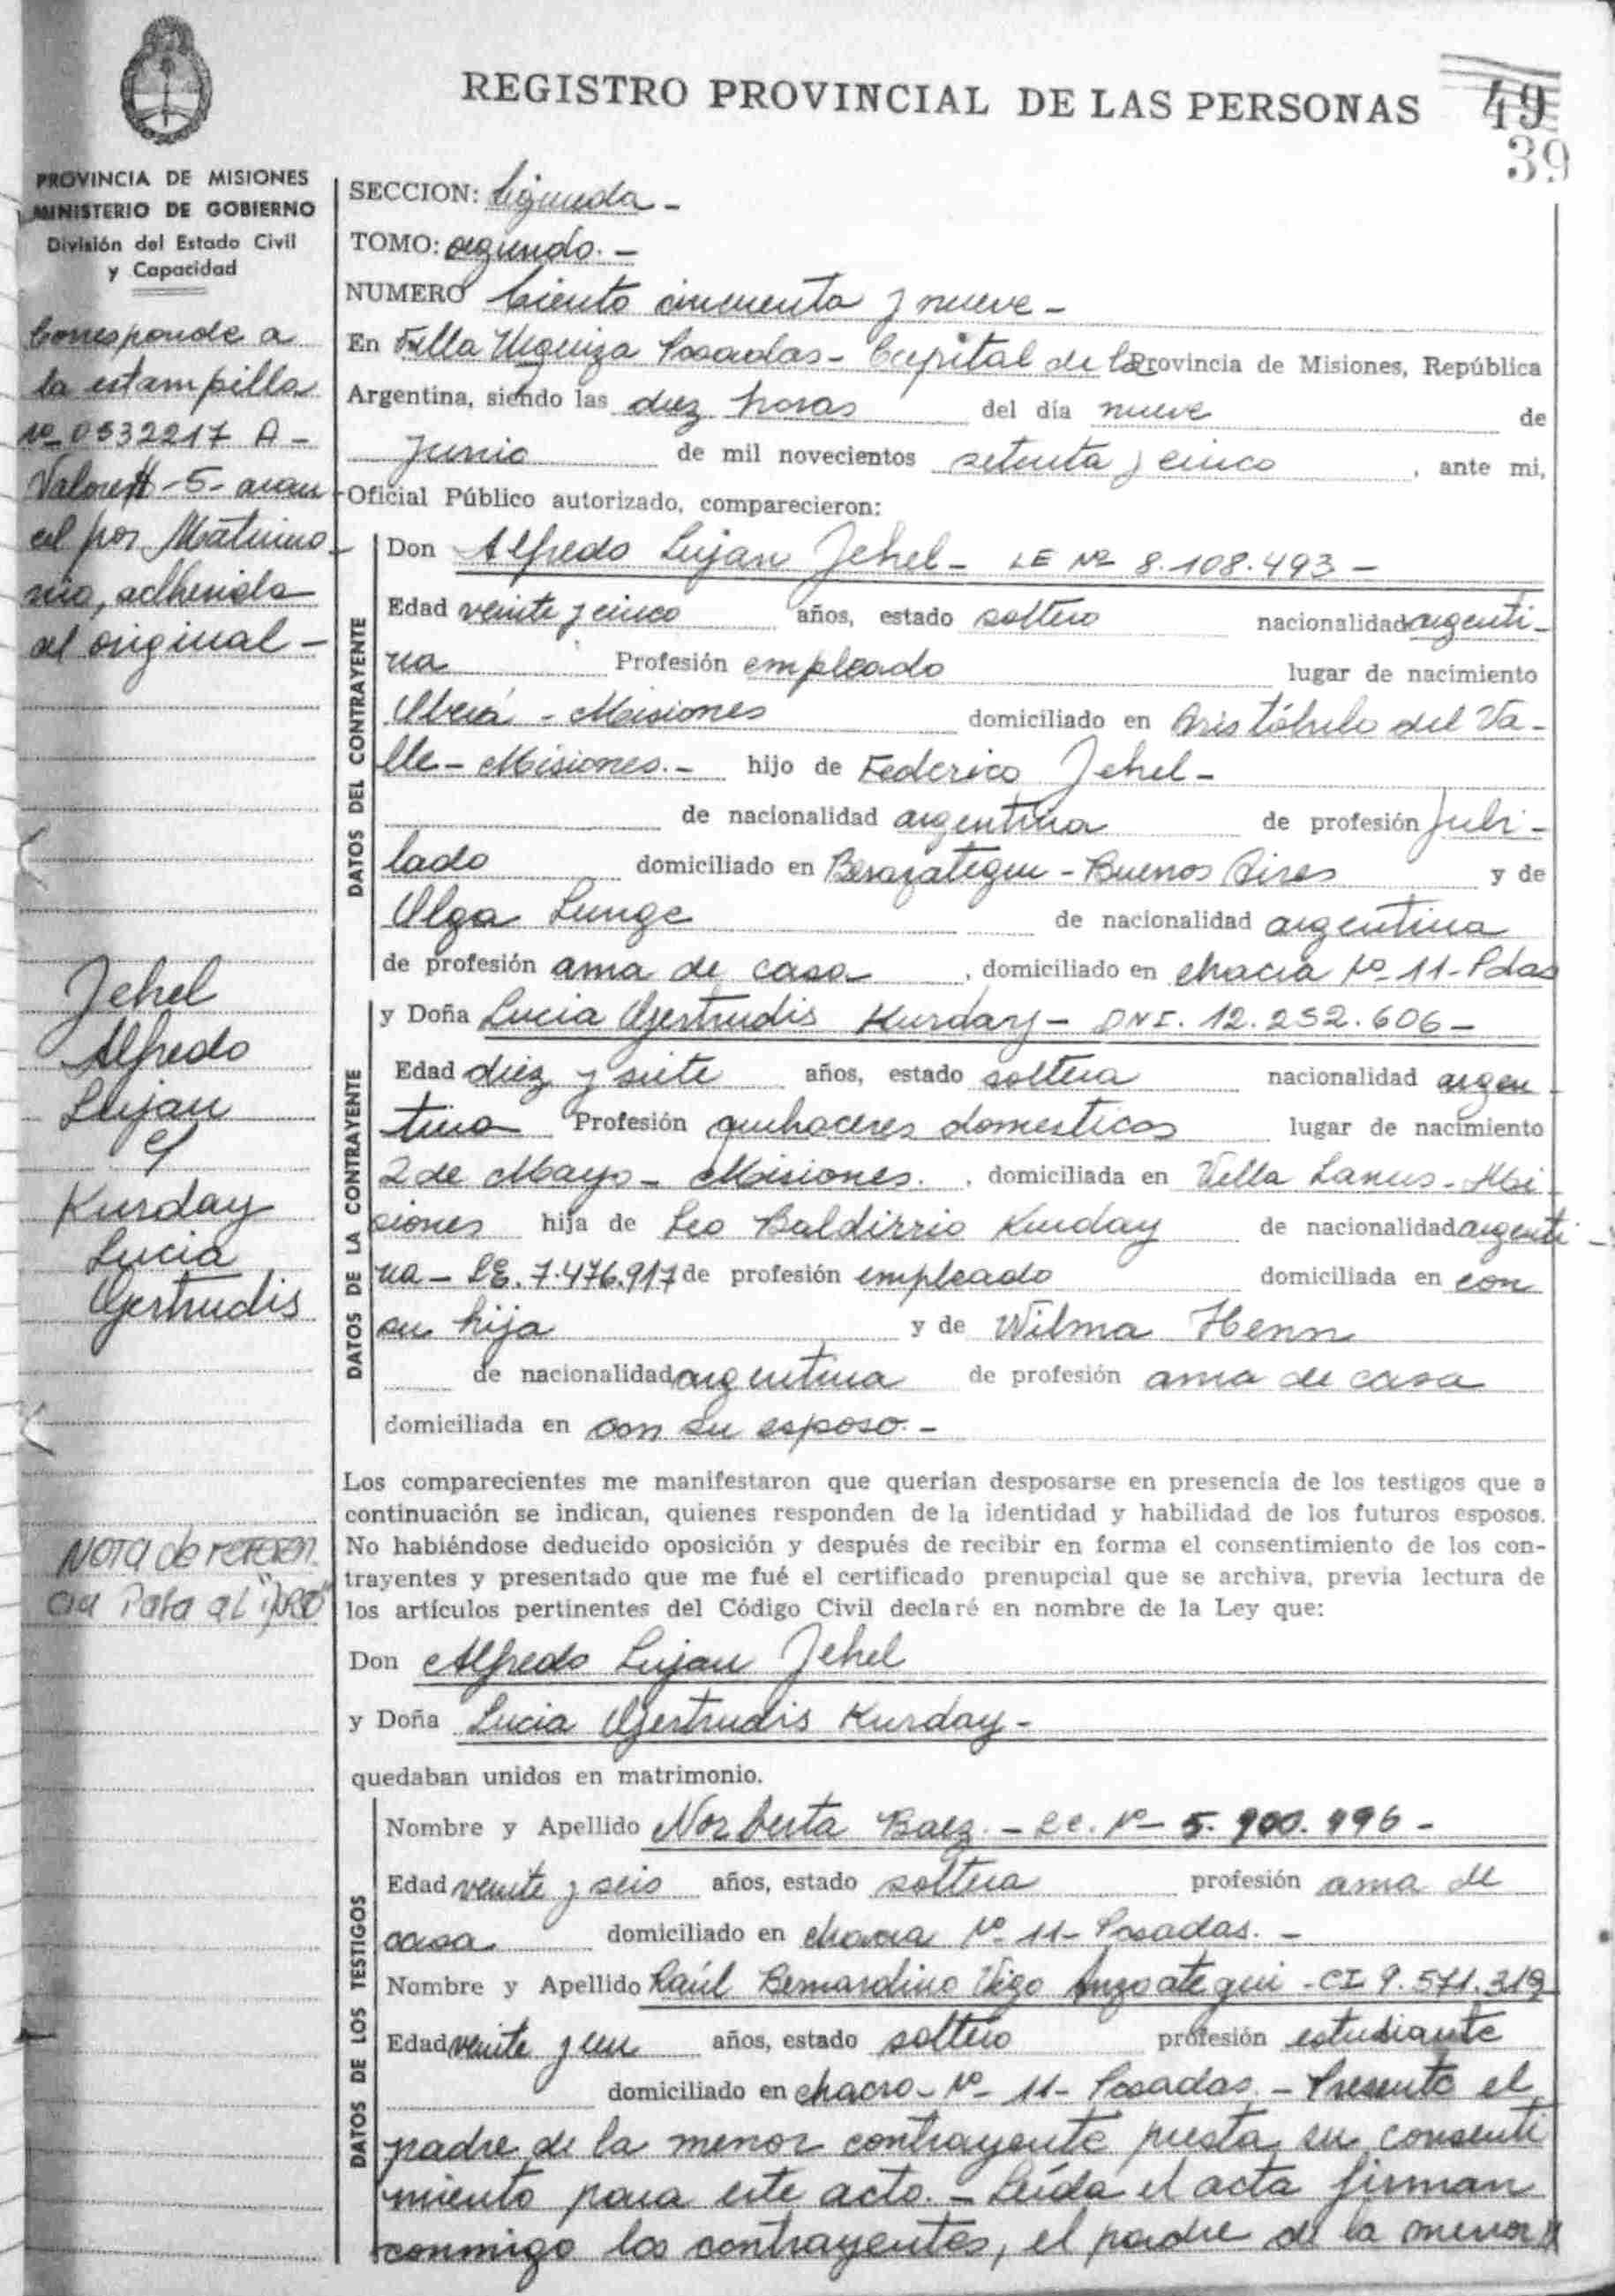 REGISTRO PROVINCIAL DE LAS PERSONAS
49
39
PROVINCIA DE MISIONES
MINISTERIO DE GOBIERNO
División del Estado Civil
y Capacidad
Corresponde a
la estampilla
Nº 0532217 A -
Valores $ -5- aran
cel por Matrimo-
nio, adherida
al original -
Jehel
Alfredo
Lujan
c/
Kurday
Lucia
Gertrudis
Nota de referen
cia Pasa al "DRSO"
SECCION: Segunda -
TOMO: segundo. -
NUMERO Ciento cincuenta y nueve -
En Villa Urquiza Posadas - Capital de la Provincia de Misiones, República
Argentina, siendo las diez horas del día nueve de
Junio de mil novecientos setenta y cinco, ante mi,
Oficial Público autorizado, comparecieron:
DATOS DEL CONTRAYENTE
Don Alfredo Lujan Jehel - LE Nº 8.108.493 -
Edad veinte y cinco años, estado soltero nacionalidad argenti-
na Profesión empleado lugar de nacimiento
Oberá - Misiones domiciliado en Aristóbulo del Va-
lle - Misiones. - hijo de Federico Jehel -
de nacionalidad argentina de profesión Jubi-
lado domiciliado en Berazategui - Buenos Aires y de
Olga Lunge de nacionalidad argentina
de profesión ama de casa, domiciliado en chacra Nº 11 - Pdas
DATOS DE LA CONTRAYENTE
y Doña Lucia Gertrudis Kurday - DNI. 12.252.606 -
Edad diez y siete años, estado soltera nacionalidad argen
tina Profesión quehaceres domesticos lugar de nacimiento
2 de Mayo - Misiones., domiciliada en Villa Lanus - Mi-
siones hija de Leo Baldirrio Kurday de nacionalidad argenti-
na - LE. 7.476.917 de profesión empleado domiciliada en con
su hija y de Wilma Henn
de nacionalidad argentina de profesión ama de casa
domiciliada en con su esposo. -
Los comparecientes me manifestaron que querían desposarse en presencia de los testigos que a
continuación se indican, quienes responden de la identidad y habilidad de los futuros esposos.
No habiéndose deducido oposición y después de recibir en forma el consentimiento de los con-
trayentes y presentado que me fué el certificado prenupcial que se archiva, previa lectura de
los artículos pertinentes del Código Civil declaré en nombre de la Ley que:
Don Alfredo Lujan Jehel
y Doña Lucia Gertrudis Kurday -
quedaban unidos en matrimonio.
DATOS DE LOS TESTIGOS
Nombre y Apellido Norberta Baez. - LC. Nº 5.900.996 -
Edad veinte y seis años, estado soltera profesión ama de
casa domiciliado en chacra Nº 11 - Posadas. -
Nombre y Apellido Raúl Bernardino Vigo Anzoategui - CI 9.571.319
Edad veinte y un años, estado soltero profesión estudiante
domiciliado en chacra - Nº 11 - Posadas. - Presente el
padre de la menor contrayente presta su consenti
miento para este acto. - Leída el acta firman
conmigo los contrayentes, el padre de la menor //